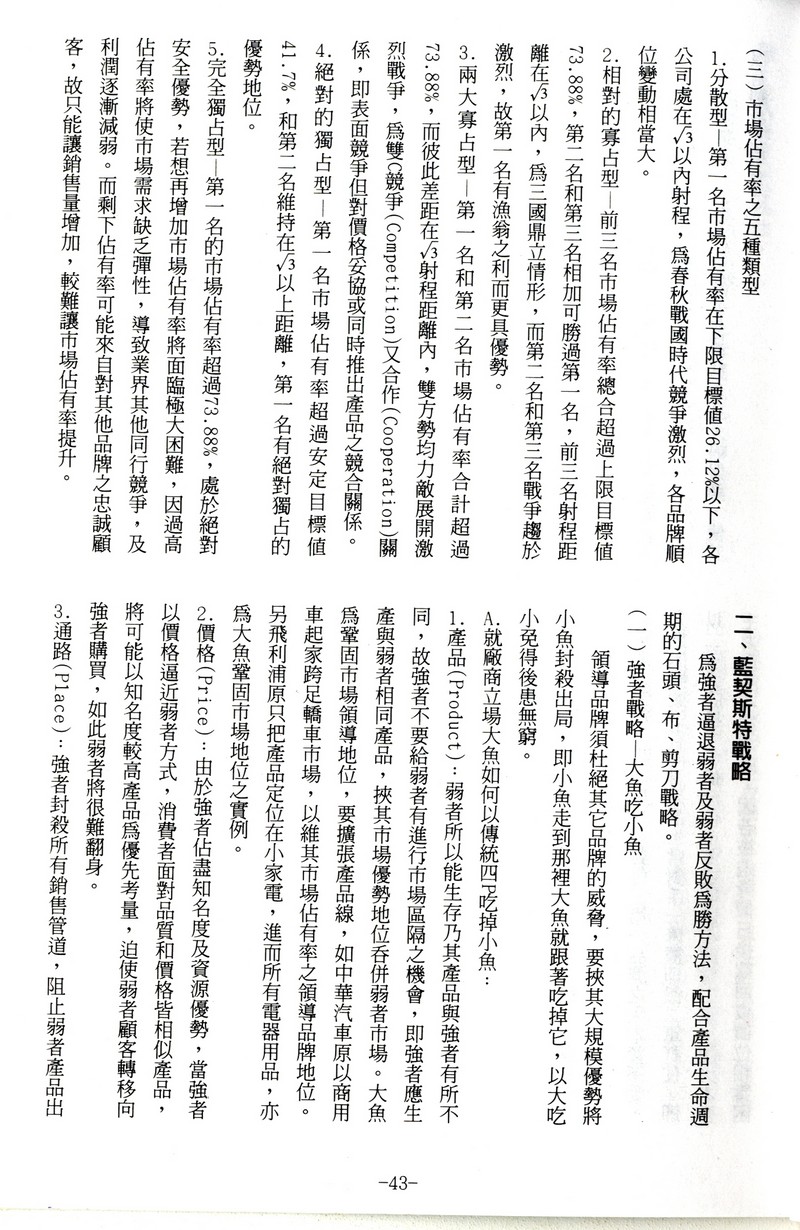 (三)市場佔有率之五種類型
1.分散型—第一名市場佔有率在下限目標值26.12%以下，各
公司處在√3以內射程，為春秋戰國時代競爭激烈，各品牌順
位變動相當大。
2.相對的寡占型—前三名市場佔有率總合超過上限目標值
73.88%，第二名和第三名相加可勝過第一名，前三名射程距
離在√3以內，為三國鼎立情形，而第二名和第三名戰爭趨於
激烈，故第一名有漁翁之利而更具優勢。
3.兩大寡占型—第一名和第二名市場佔有率合計超過
73.88%，而彼此差距在√3射程距離內，雙方勢均力敵展開激
烈戰爭，為雙C競爭(Competition)又合作(Cooperation)關
係，即表面競爭但對價格妥協或同時推出產品之競合關係。
4.絕對的獨占型—第一名市場佔有率超過安定目標值
41.7%，和第二名維持在√3以上距離，第一名有絕對獨占的
優勢地位。
5.完全獨占型—第一名的市場佔有率超過73.88%，處於絕對
安全優勢，若想再增加市場佔有率將面臨極大困難，因過高
佔有率將使市場需求缺乏彈性，導致業界其他同行競爭，及
利潤逐漸減弱。而剩下佔有率可能來自對其他品牌之忠誠顧
客，故只能讓銷售量增加，較難讓市場佔有率提升。
二、藍契斯特戰略
為強者逼退弱者及弱者反敗為勝方法，配合產品生命週
期的石頭、布、剪刀戰略。
(一)強者戰略—大魚吃小魚
領導品牌須杜絕其它品牌的威脅，要挾其大規模優勢將
小魚封殺出局，即小魚走到那裡大魚就跟著吃掉它，以大吃
小免得後患無窮。
A.就廠商立場大魚如何以傳統四P吃掉小魚：
1.產品(Product)：弱者所以能生存乃其產品與強者有所不
同，故強者不要給弱者有進行市場區隔之機會，即強者應生
產與弱者相同產品，挾其市場優勢地位吞併弱者市場。大魚
為鞏固市場領導地位，要擴張產品線，如中華汽車原以商用
車起家跨足轎車市場，以維其市場佔有率之領導品牌地位。
另飛利浦原只把產品定位在小家電，進而所有電器用品，亦
為大魚鞏固市場地位之實例。
2.價格(Price)：由於強者佔盡知名度及資源優勢，當強者
以價格逼近弱者方式，消費者面對品質和價格皆相似產品，
將可能以知名度較高產品為優先考量，迫使弱者顧客轉移向
強者購買，如此弱者將很難翻身。
3.通路(Place)：強者封殺所有銷售管道，阻止弱者產品出
-43-